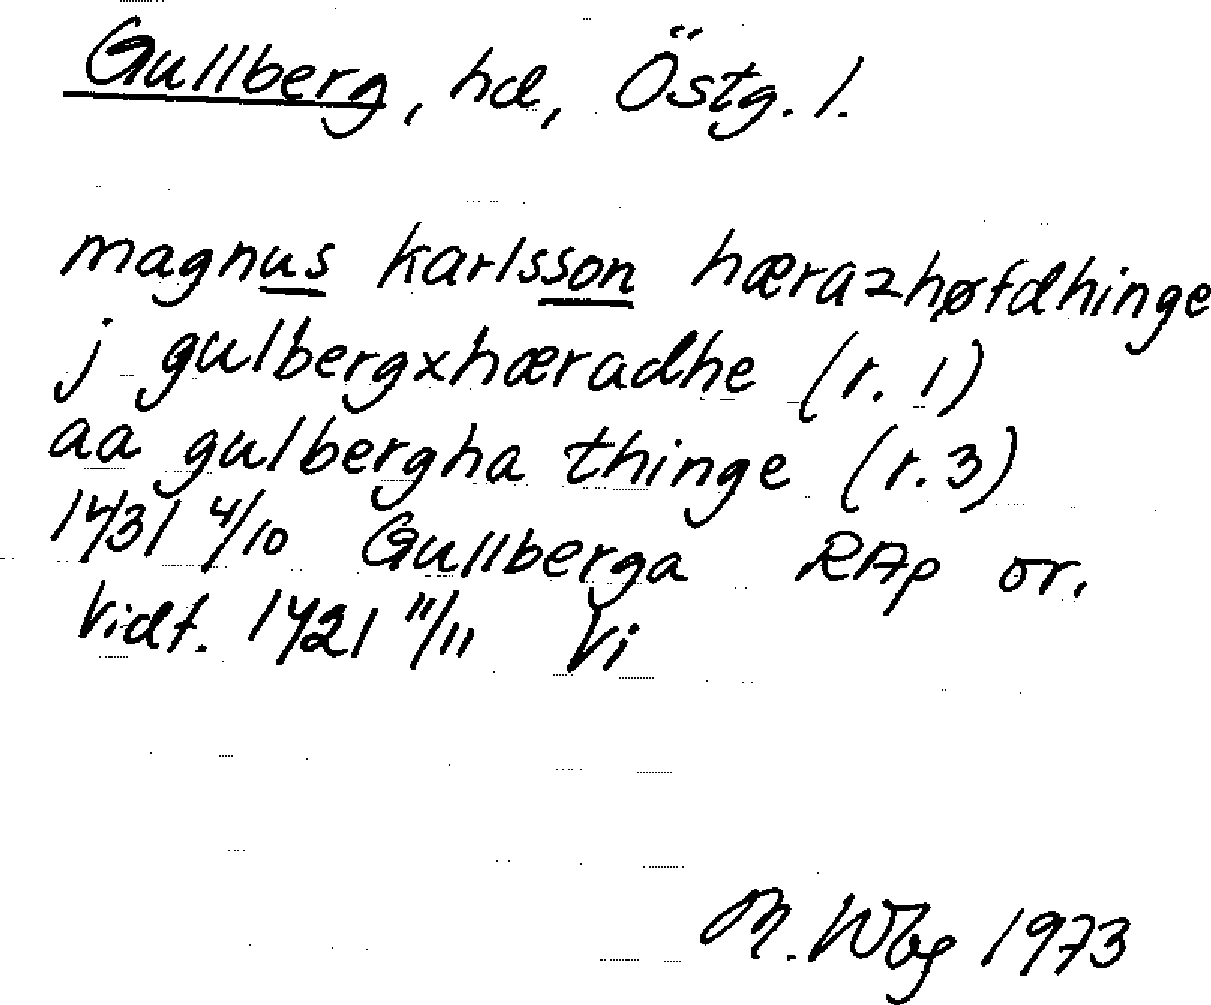 Gullberg, hd, Östg. l.
magnus karlsson hærazhøfdhinge
j gulbergxhæradhe (r. 1)
aa gulbergha thinge (r. 3)
1431 4/10 Gullberga RAp or.
Vidf. 1421 11/11 Vi
M. Wbg 1973